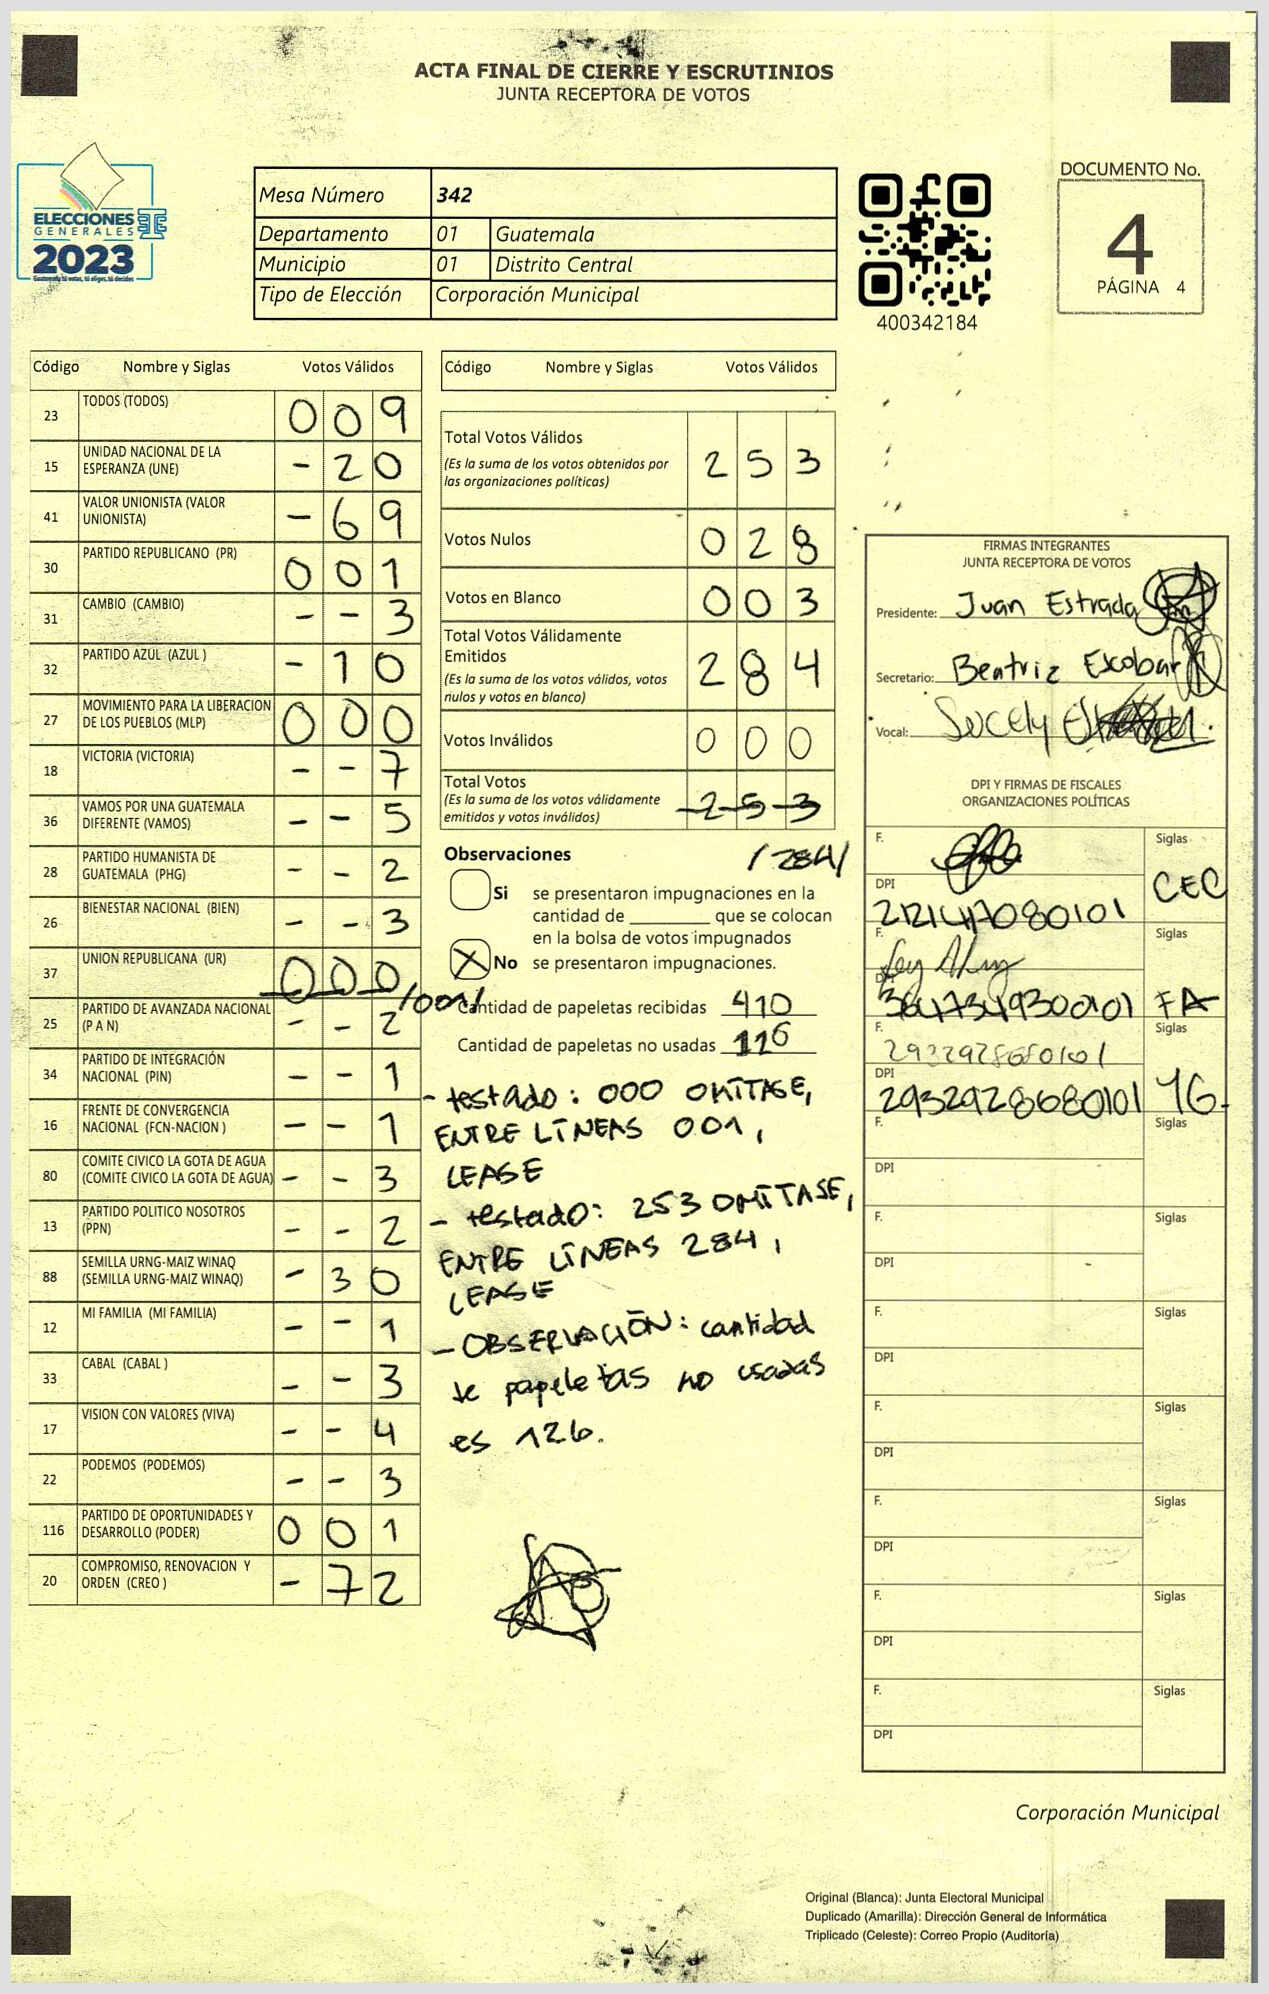 ACTA FINAL DE CIERRE Y ESCRUTINIOS
JUNTA RECEPTORA DE VOTOS
ELECCIONES
GENERALES
2023
Guatemala tú votas, tú eliges, tú decides
Mesa Número 342
Departamento 01 Guatemala
Municipio 01 Distrito Central
Tipo de Elección Corporación Municipal
400342184
DOCUMENTO No.
4
PÁGINA 4
Código Nombre y Siglas Votos Válidos
23 TODOS (TODOS) 0 0 9
15 UNIDAD NACIONAL DE LA ESPERANZA (UNE) - 2 0
41 VALOR UNIONISTA (VALOR UNIONISTA) - 6 9
30 PARTIDO REPUBLICANO (PR) 0 0 1
31 CAMBIO (CAMBIO) - - 3
32 PARTIDO AZUL (AZUL ) - 1 0
27 MOVIMIENTO PARA LA LIBERACION DE LOS PUEBLOS (MLP) 0 0 0
18 VICTORIA (VICTORIA) - - 7
36 VAMOS POR UNA GUATEMALA DIFERENTE (VAMOS) - - 5
28 PARTIDO HUMANISTA DE GUATEMALA (PHG) - - 2
26 BIENESTAR NACIONAL (BIEN) - - 3
37 UNION REPUBLICANA (UR) 0 0 0 /001/
25 PARTIDO DE AVANZADA NACIONAL (P A N) - - 2
34 PARTIDO DE INTEGRACIÓN NACIONAL (PIN) - - 1
16 FRENTE DE CONVERGENCIA NACIONAL (FCN-NACION ) - - 1
80 COMITE CIVICO LA GOTA DE AGUA (COMITE CIVICO LA GOTA DE AGUA) - - 3
13 PARTIDO POLITICO NOSOTROS (PPN) - - 2
88 SEMILLA URNG-MAIZ WINAQ (SEMILLA URNG-MAIZ WINAQ) - 3 0
12 MI FAMILIA (MI FAMILIA) - - 1
33 CABAL (CABAL ) - - 3
17 VISION CON VALORES (VIVA) - - 4
22 PODEMOS (PODEMOS) - - 3
116 PARTIDO DE OPORTUNIDADES Y DESARROLLO (PODER) 0 0 1
20 COMPROMISO, RENOVACION Y ORDEN (CREO ) - 7 2
Código Nombre y Siglas Votos Válidos
Total Votos Válidos 2 5 3
(Es la suma de los votos obtenidos por
las organizaciones políticas)
Votos Nulos 0 2 8
Votos en Blanco 0 0 3
Total Votos Válidamente
Emitidos 2 8 4
(Es la suma de los votos válidos, votos
nulos y votos en blanco)
Votos Inválidos 0 0 0
Total Votos
(Es la suma de los votos válidamente
emitidos y votos inválidos) 2 5 3
/284/
Observaciones
Si se presentaron impugnaciones en la
cantidad de ________ que se colocan
en la bolsa de votos impugnados
X No se presentaron impugnaciones.
Cantidad de papeletas recibidas 410
Cantidad de papeletas no usadas 116
- testado: 000 OMÍTASE,
ENTRE LÍNEAS 001,
LEASE
- testado: 253 OMÍTASE,
ENTRE LÍNEAS 284,
LEASE
- OBSERVACIÓN: cantidad
de papeletas no usadas
es 126.
FIRMAS INTEGRANTES
JUNTA RECEPTORA DE VOTOS
Presidente: Juan Estrada
Secretario: Beatriz Escobar
Vocal: Sucely
DPI Y FIRMAS DE FISCALES
ORGANIZACIONES POLÍTICAS
F. Siglas
DPI CEC
F. Siglas
DPI FA
F. 2932928680101 Siglas
DPI 2932928680101 YG.
F. Siglas
DPI
F. Siglas
DPI
F. Siglas
DPI
F. Siglas
DPI
F. Siglas
DPI
F. Siglas
DPI
F. Siglas
DPI
Corporación Municipal
Original (Blanca): Junta Electoral Municipal
Duplicado (Amarilla): Dirección General de Informática
Triplicado (Celeste): Correo Propio (Auditoría)